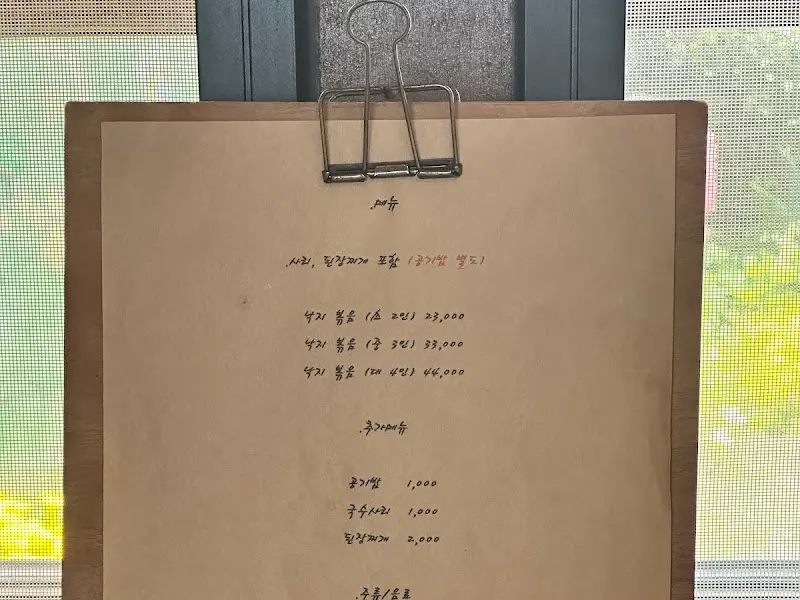 .메뉴
.사리, 된장찌개 포함 (공기밥 별도)
낙지 볶음 (소 2인) 23,000
낙지 볶음 (중 3인) 33,000
낙지 볶음 (대 4인) 44,000
.추가메뉴
공기밥 1,000
국수사리 1,000
된장찌개 2,000
.주류/음료